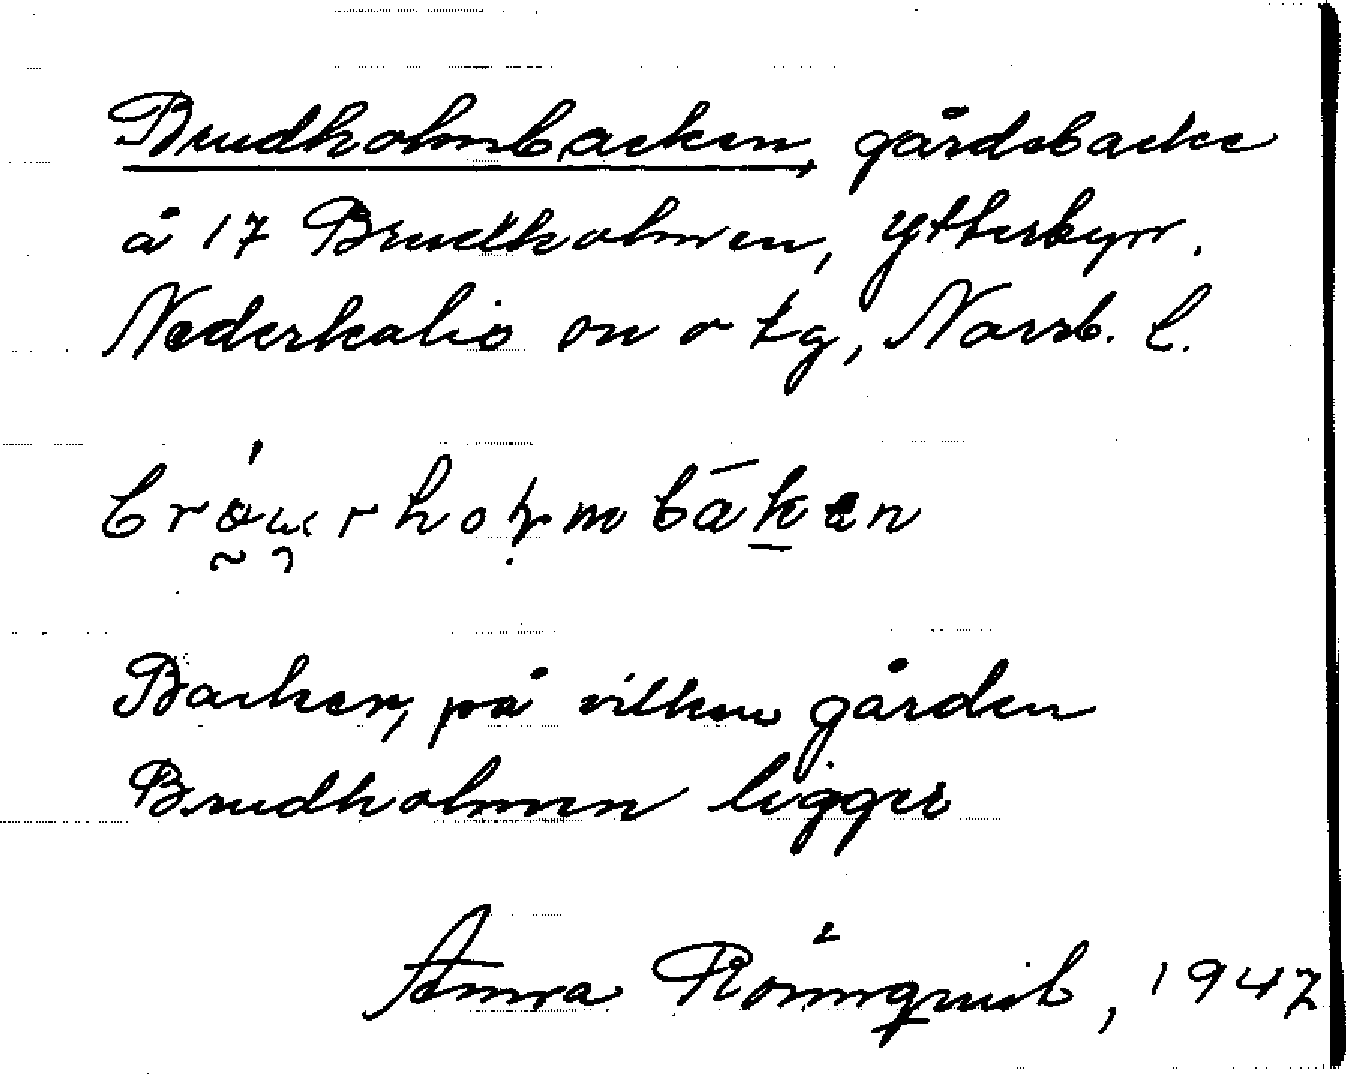 Brudholmbacken, gårdsbacke
å 17 Brudholmen, Ytterbyn.
Nederkalix sn o tg, Norrb. l.
Backen, på vilken gården
Brudholmen ligger
Anna Rönnqvist, 1947